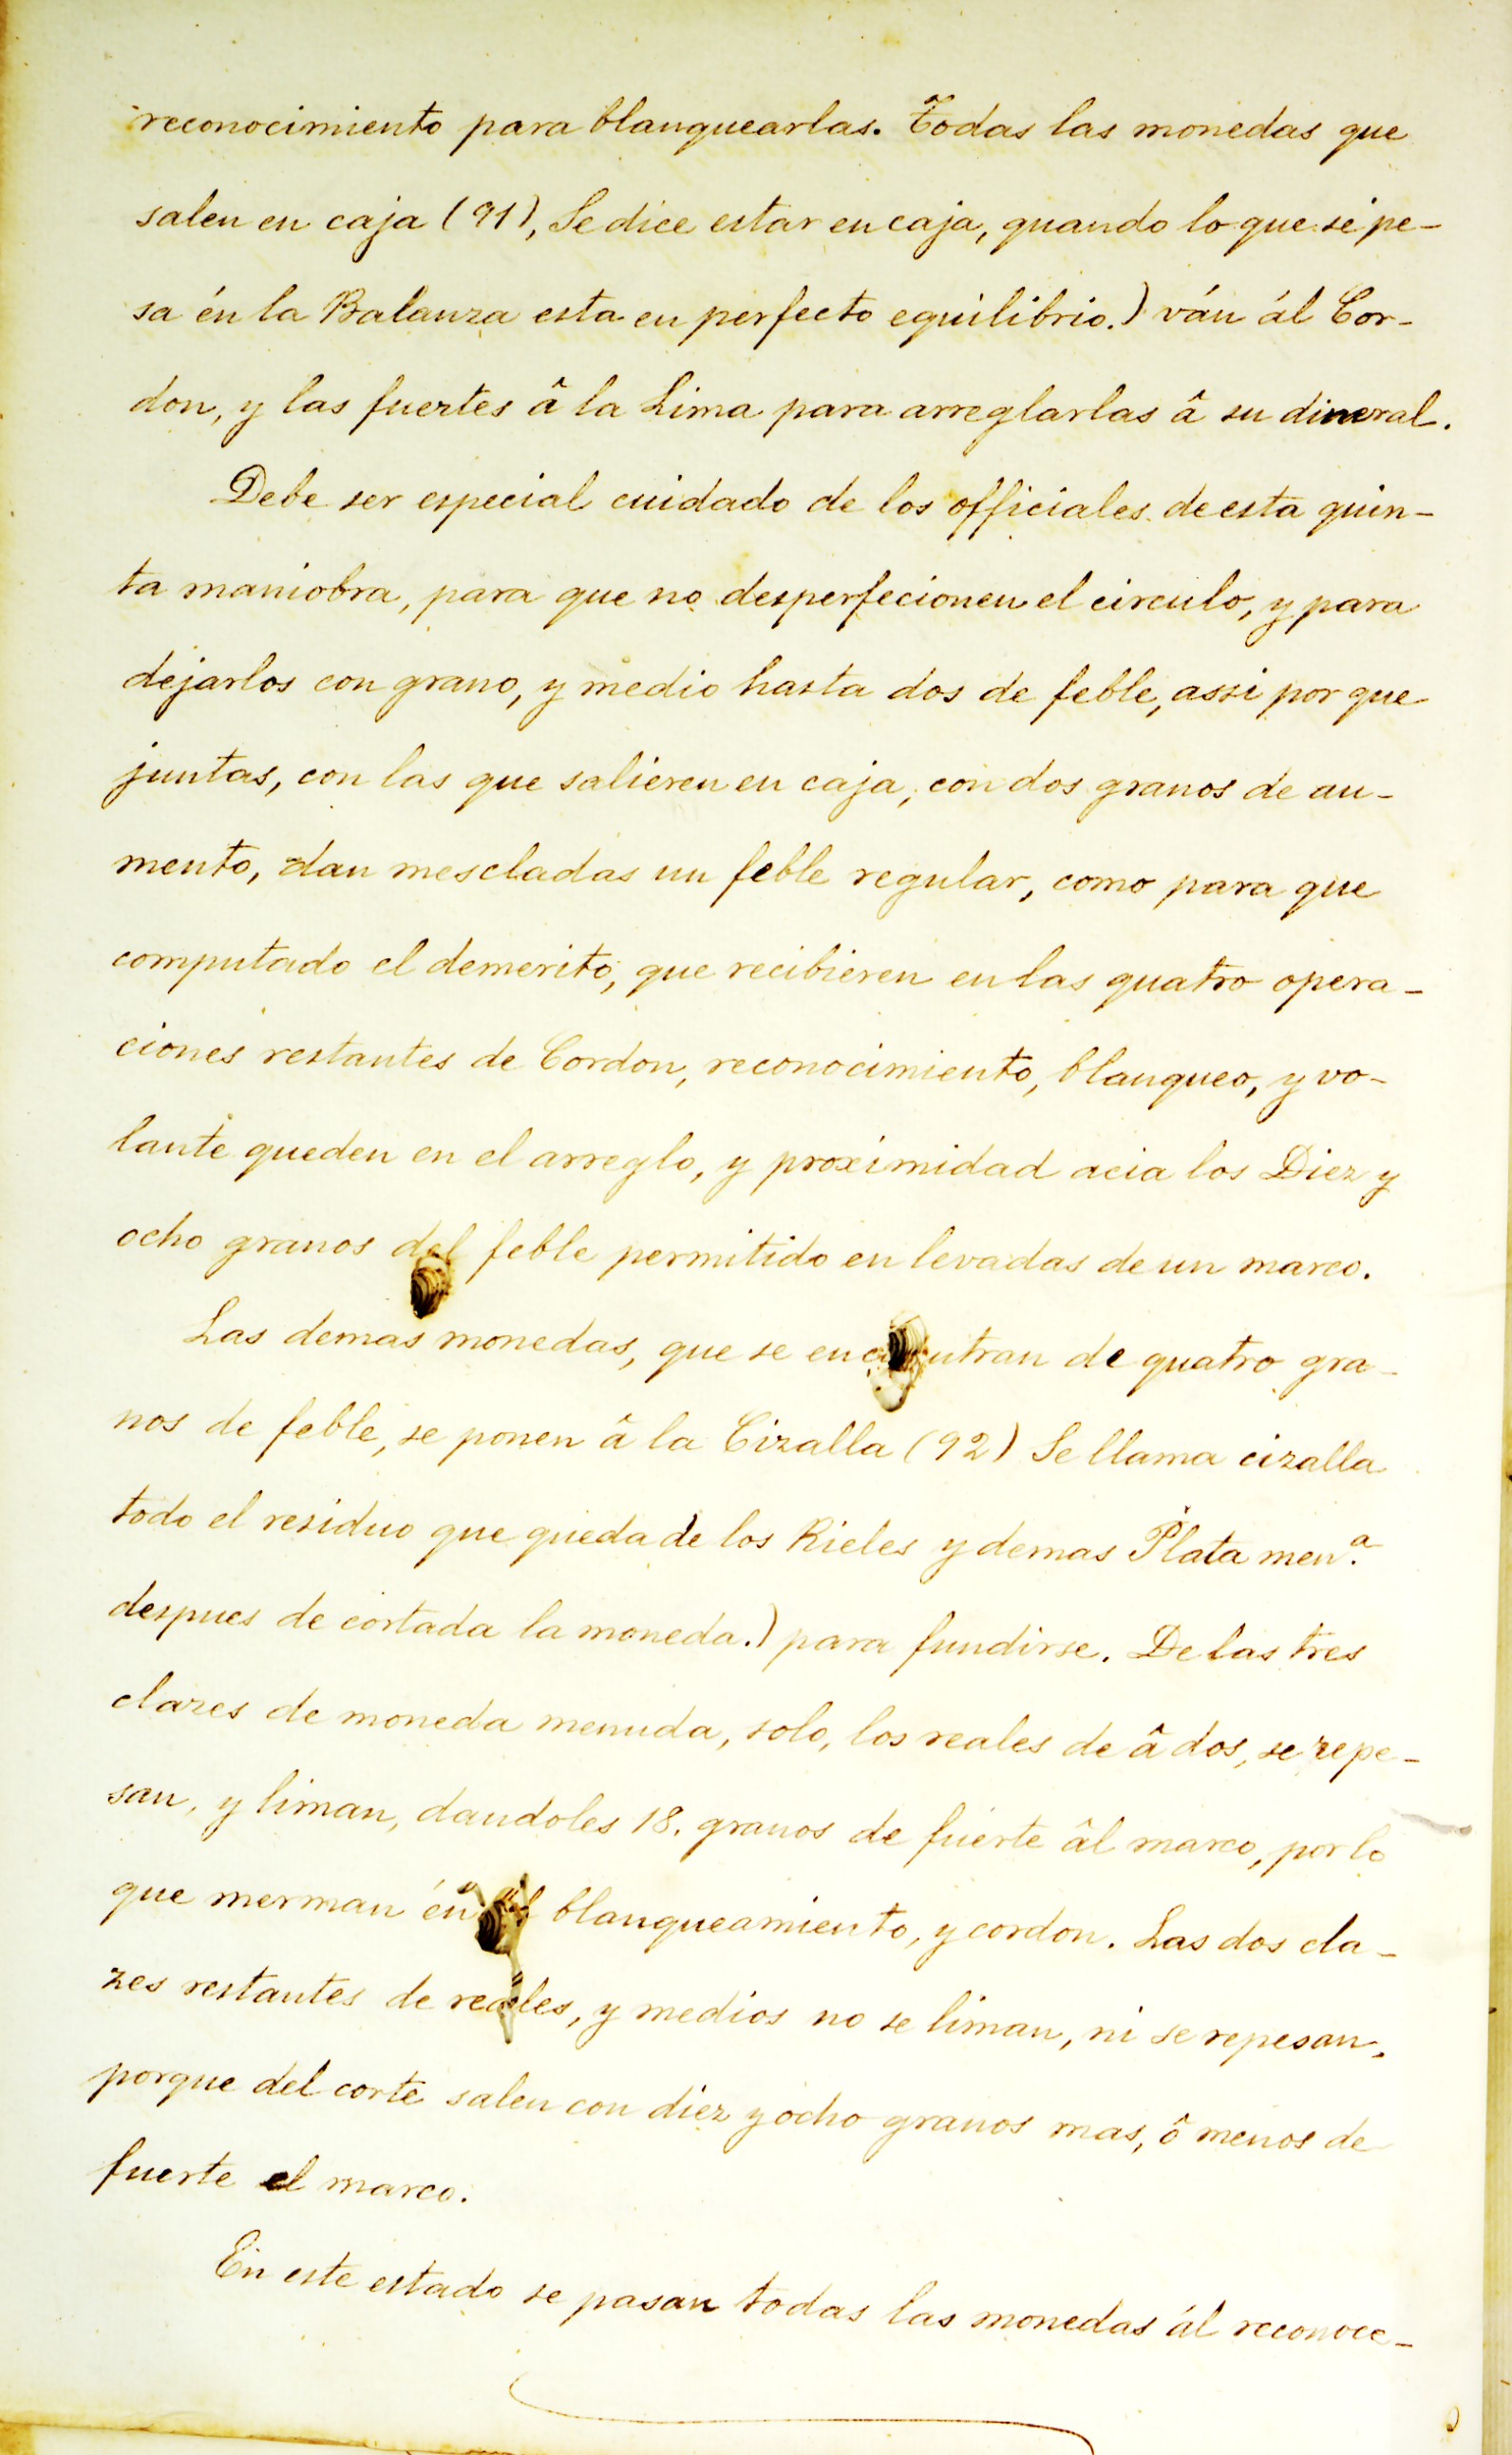 reconocimiento para blanquearlas. Todas las monedas que
salen en caja (91), Se dice estar en caja, quando lo que se pe-
sa én la Balanza esta en perfecto equilibrio.) ván ál Cor-
don, y las fuertes â la Lima para arreglarlas â su dineral.
Debe ser especial cuidado de los officiales de esta quin-
ta maniobra, para que no desperfecionen el circulo, y para
dejarlos con grano, y medio hasta dos de feble, assi por que
juntas, con las que salieren en caja, con dos granos de au-
mento, dan mescladas un feble regular, como para que
computado el demerito, que recibieren en las quatro opera-
ciones restantes de Cordon, reconocimiento, blanqueo, y vo-
lante queden en el arreglo, y proximidad acia los Diez y
ocho granos del feble permitido en levadas de un marco.
Las demas monedas, que se encuentran de quatro gra-
nos de feble, se ponen â la Cizalla (92) Se llama cizalla
todo el residuo que queda de los Rieles y demas Plata men.ª
despues de cortada la moneda.) para fundirse. De las tres
clazes de moneda menuda, solo, los reales de â dos, se repe-
san, y liman, dandoles 18. granos de fuerte âl marco, por lo
que merman én el blanqueamiento, y cordon. Las dos cla-
zes restantes de reales, y medios no se liman, ni se repesan,
porque del corte salen con diez y ocho granos mas, ô menos de
fuerte el marco.
En este estado se pasan todas las monedas ál reconoce-